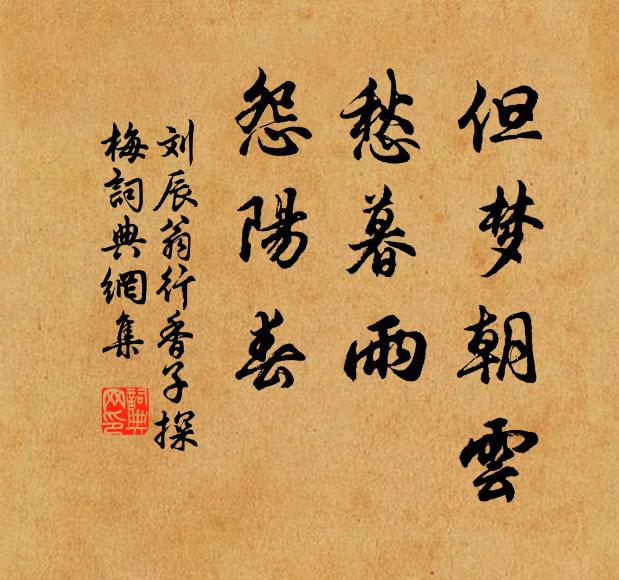 但梦朝雲
愁暮雨
怨陽春
刘辰翁行香子探
梅詞典網集
詞典
网印